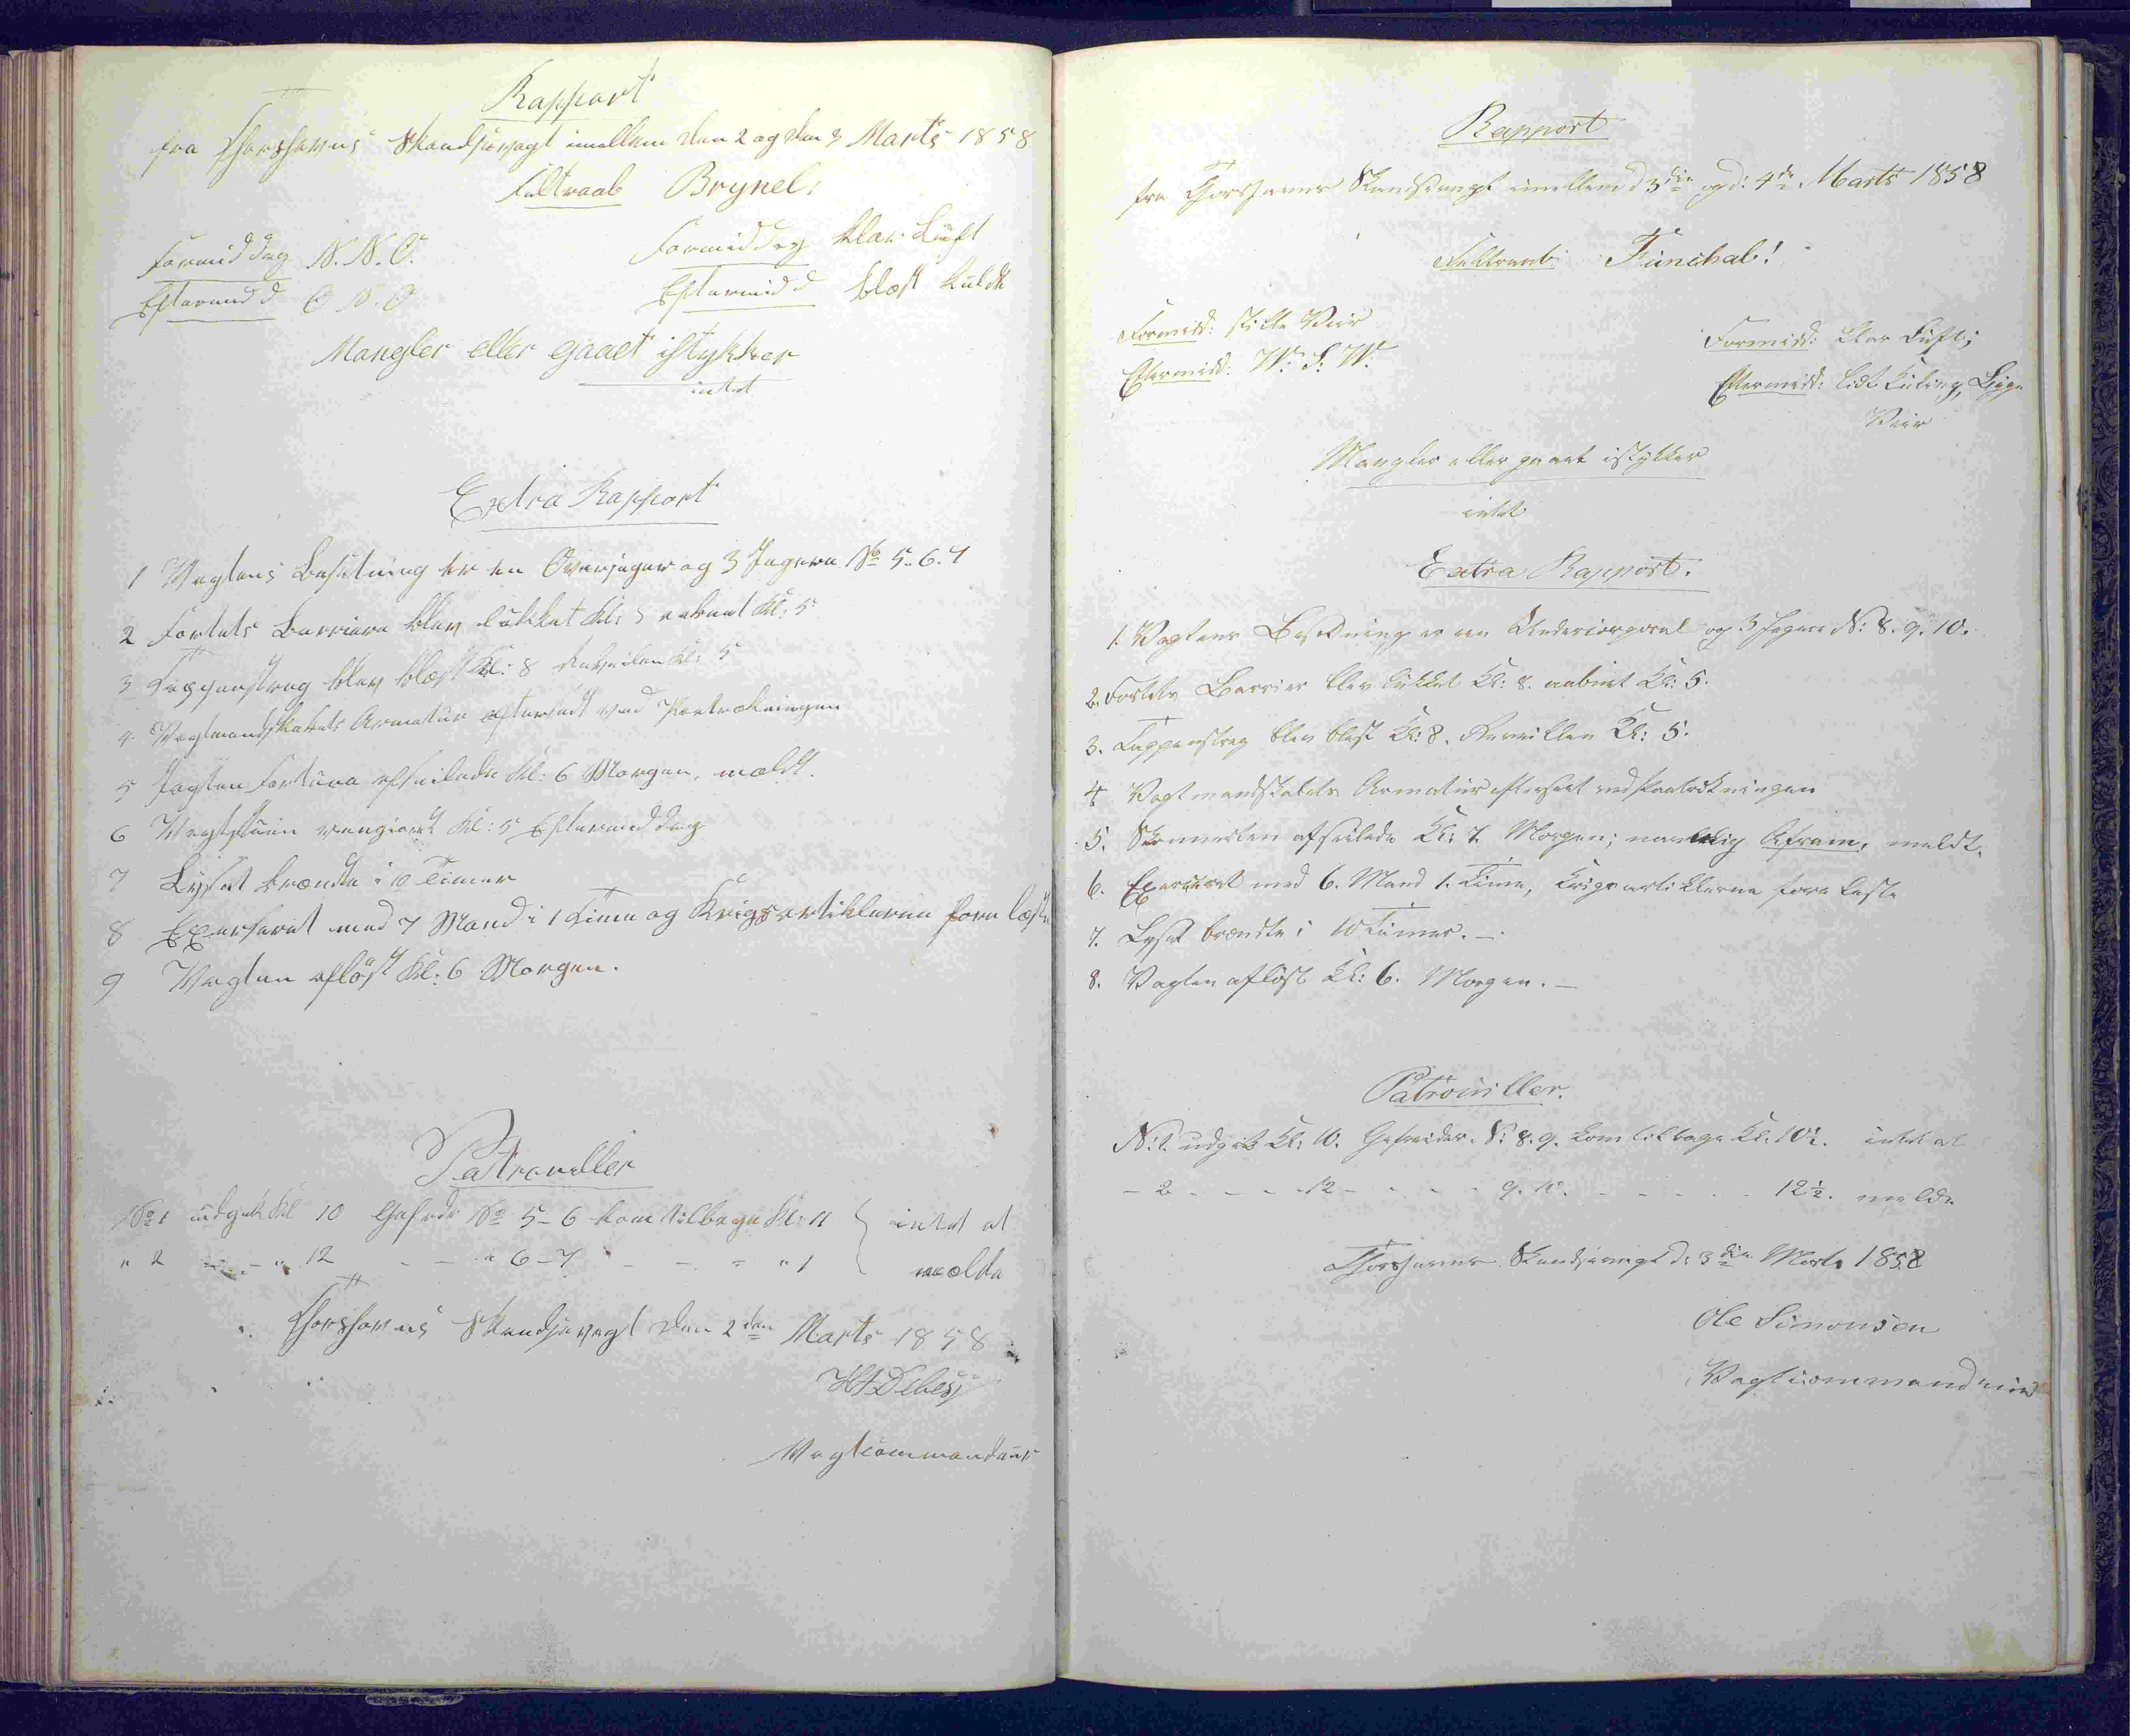 Rapport
fra Thorshavns Skandsevagt imellem den 2 og den 3 Marts 1858
Feltraab Brynel:
Formiddag N.N.O. Formiddag klar Luft
Eftermidd O N.O Eftermidd blæst Kulde
Mangler eller gaaet istykker
intet
Extra Rapport
1 Vagtens Besætning er en Overjæger og 3 Jægere No 5.6.7
2 Fortets Barriere blev lukket Kl: 8 aabnet Kl: 5
3 Tappenstreg blev blæst Kl: 8 Reveillen Kl: 5
4 Vagtmandskabets Armatur efterseet ved Paatrækningen
5 Jagten Fortuna afseilede Kl: 6 Morgen, mældt.
6 Vagtstuen rengiort Kl: 5 Eftermiddag
7 Lyset brændte i 10 Timer
8 Exerseret med 7 Mand i 1 Time og Krigsartiklerne fore læste
9 Vagten afløst Kl: 6 Morgen.
Patrouller
No 1 udgik Kl 10 Gefrede No 5-6 kom tilbage Kl: 11 } intet at
" 2 - - " 12 - - " 6-7 - - - " 1 mælde
Thorshavns Skandsevagt den 2den Marts 1858
Debes
Vagtcommandeur
Rapport
fra Thorshavns Skandsevagt imellem d 3die og d: 4de Marts 1858
Feltraab: Funchal!
Formidd: stille Veir Formidd: klar Luft;
Eftermidd: W. S. W. Eftermidd: lidt Kuling, Bygge
Veir
Mangler eller gaaet istykker
intet
Extra Rapport.
1. Vagtens Besætning er een Undercorporal og 3 Jægere N: 8. 9. 10.
2. Fortets Barrier blev lukket Kl: 8. aabnet Kl: 5.
3. Tappenstreg blev blæst Kl: 8. Reveillen Kl: 5.
4 Vagtmandskabets Armatur efterseet ved Paatrækningen
5. Skonnerten afseilede Kl: 7. Morgen; navnlig Efraim, meldt.
6. Exerceret med 6. Mand 1. Time, Krigsartiklerne fore læste
7. Lyset brændte i 10 Timer. -
8. Vagten afløst Kl: 6. Morgen. -
Patrouiller.
N: 1. udgik Kl: 10. Gefreider N: 8. 9. kom tilbage Kl: 10½. intet at
- 2 - - - 12 - - - - 9. 10. - - - - - 12½. melde
Thorshavns Skandsevagt d: 3die Marts 1858
Ole Simonsen
Vagtcommandeur